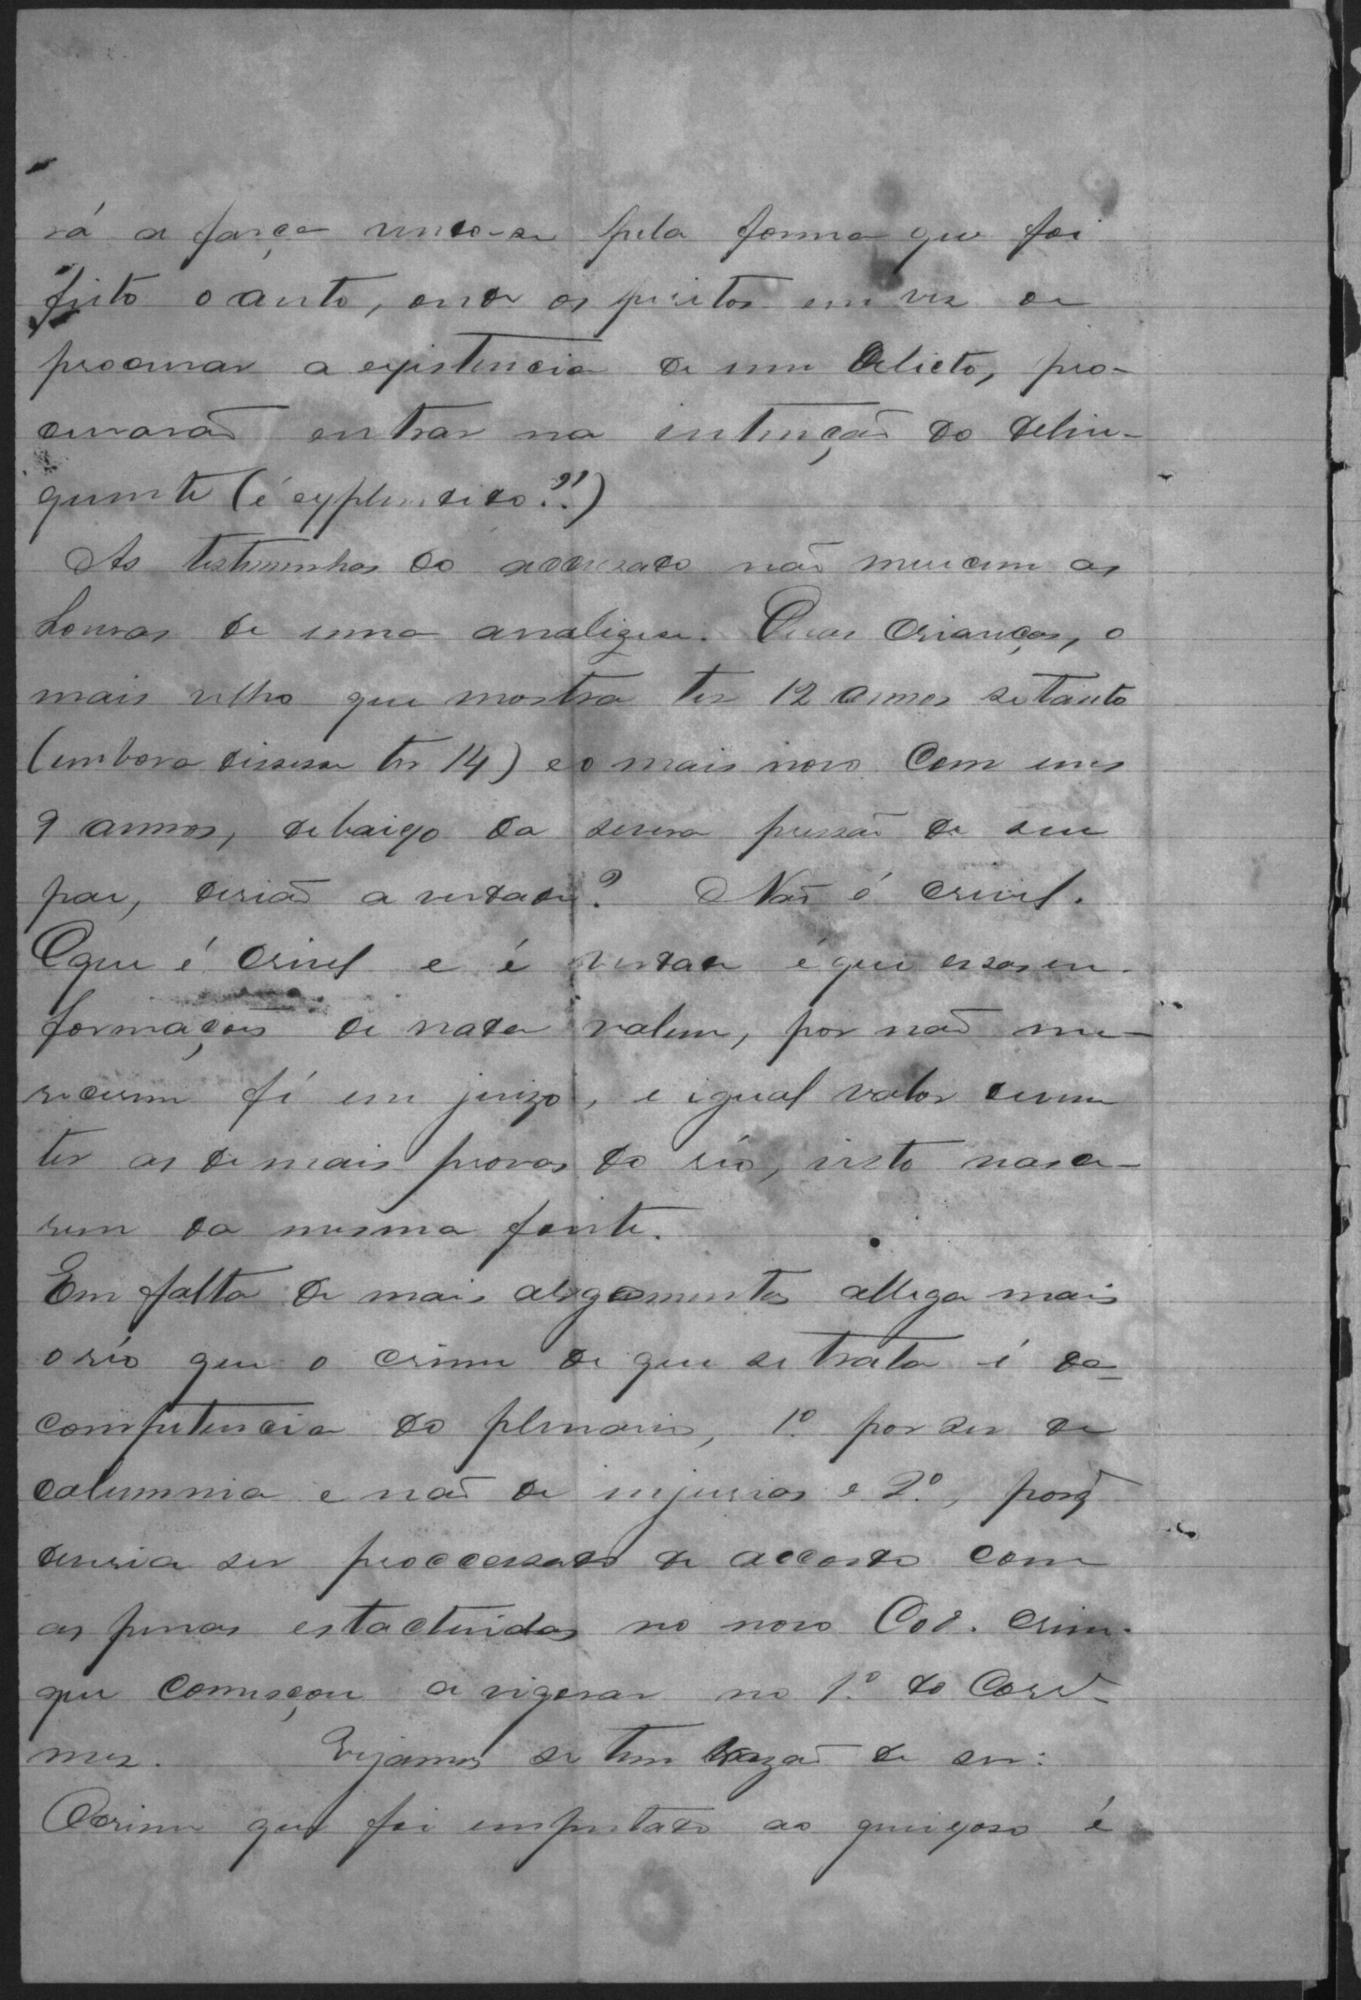 rá a farça vendo-se pela forma que foi
feito o auto, onde os peritos em vez de
procurar a existencia de um delicto, pro-
curarão entrar na intenção do delin-
quente (é explendido?!)
As testemunhas do accusado não merecem as
honras de uma analize. Duas crianças, o
mais velho que mostra ter 12 annos se tanto
(embora dissesse ter 14) e o mais novo com uns
9 annos, debaixo da severa pressão de seu
pae, dirião a verdade? Não é crivel.
O que é crivel e é verdade é que essas in-
formações de nada valem, por não me-
recerem fé em juizo, e igual valor devem
ter as demais provas do réo, visto nasce-
rem da mesma fonte.
Em falta de mais argumentos allega mais
o réo que o crime de que se trata é da
competencia do plenario, 1º por ser de
calumnia e não de injurias e 2º, porq̃
deveria ser proccessado de accordo com
as penas estactuidas no novo Cod. Crim.
que começou a vigorar no 1º do Corr.
mez. Vejamos se tem razão de ser:
O crime que foi imputado ao queixoso é